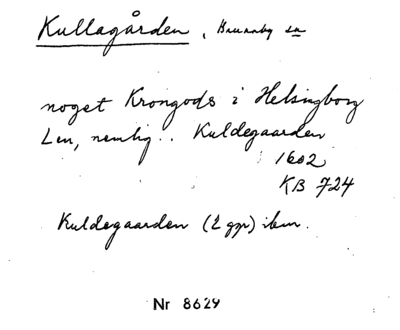 Kullagården, Brunnby sn
noget Krongods i Helsingborg
Len, nemlig.. Kuldegaarden
1602
KB 724
Kuldegaarden (2 gpr) ibm.
Nr 8629